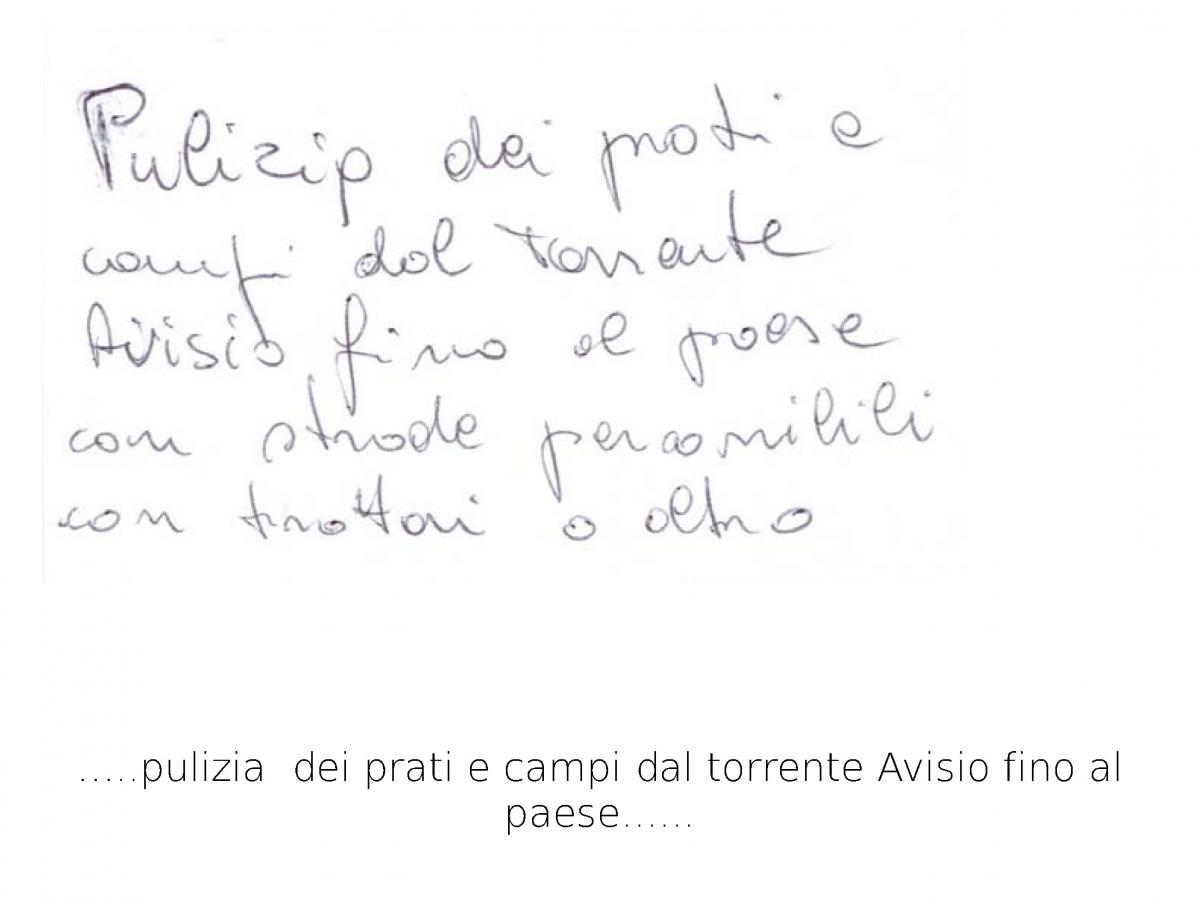 Pulizia dei prati e
campi dal torrente
Avisio fino al paese
con strade percorribili
con trattori o altro
.....pulizia dei prati e campi dal torrente Avisio fino al
paese......